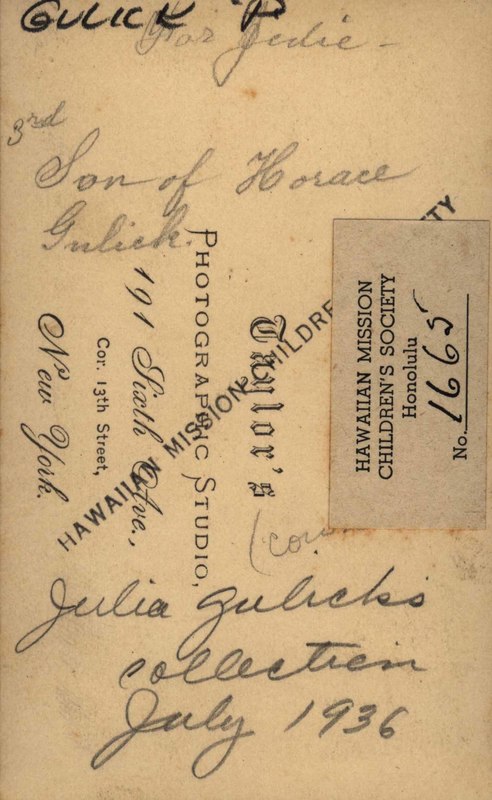 GULICK P
For Julie -
3rd
Son of Horace
Gulick.
Taylor's
PHOTOGRAPHIC STUDIO,
191 Sixth Ave.,
Cor. 13th Street,
New York.
HAWAIIAN MISSION CHILDRE
TY
HAWAIIAN MISSION
CHILDREN'S SOCIETY
Honolulu
No. 1665
Julia Gulicks
collection
July 1936